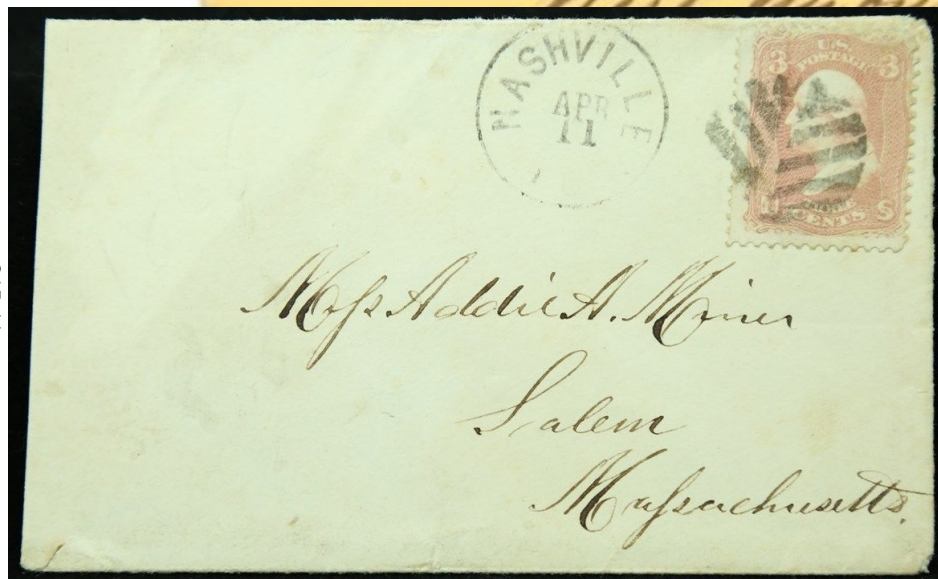 NASHVILLE
APR
11
U.S.
POSTAGE
3 3
U S
CENTS
Miſs Addie A. Miner
Salem
Maſsachusetts.